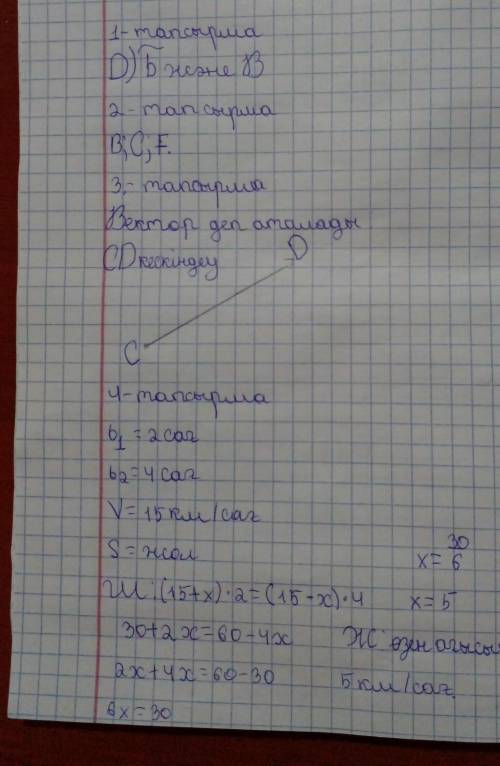 1-тапсырма
D) b және B
2-тапсырма
B; C; F.
3,-тапсырма
Вектор деп аталады
CD кескіндеу
D
C
4-тапсырма
b1 = 2 сағ
b2 = 4 сағ
V = 15 км/сағ
S = жол
x = 30/6
Ш: (15+x)·2=(15-x)·4
x = 5
30+2x=60-4x
Ж: өзен ағысы
2x+4x=60-30
5 км/сағ.
6x=30